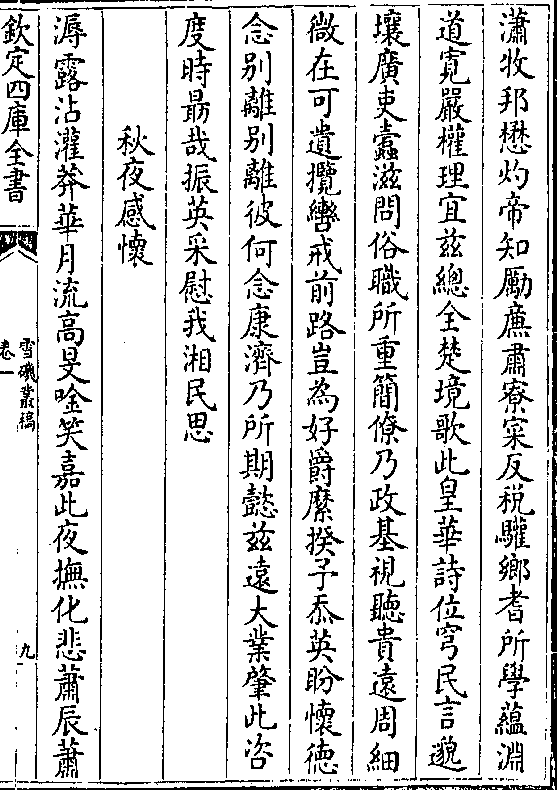 瀟牧邦懋灼帝知勵廉肅寮寀反税驩鄉耆所學藴淵
道寛嚴權理宜兹總全楚境歌此皇華詩位穹民言邈
壤廣吏蠧滋問俗職所重簡僚乃政基視聽貴遠周細
微在可遺攬轡戒前路豈為好爵縻揆予忝英盼懷徳
念别離别離彼何念康濟乃所期懿兹遠大業肇此咨
度時勗哉振英采慰我湘民思
秋夜感懷
溽露沾灌莽華月流高旻唫笑嘉此夜撫化悲蕭辰蕭
欽定四庫全書
雪磯叢稿
卷一
九